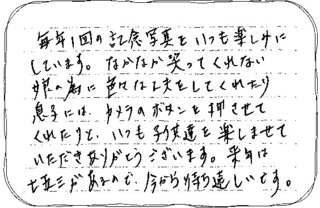 毎年1回の記念写真をいつも楽しみに
しています。なかなか笑ってくれない
娘の為に色々な工夫をしてくれたり
息子には、カメラのボタンを押させて
くれたりと、いつも子供達を楽しませて
いただきありがとうございます。来年は
七五三があるので、今から待ち遠しいです。